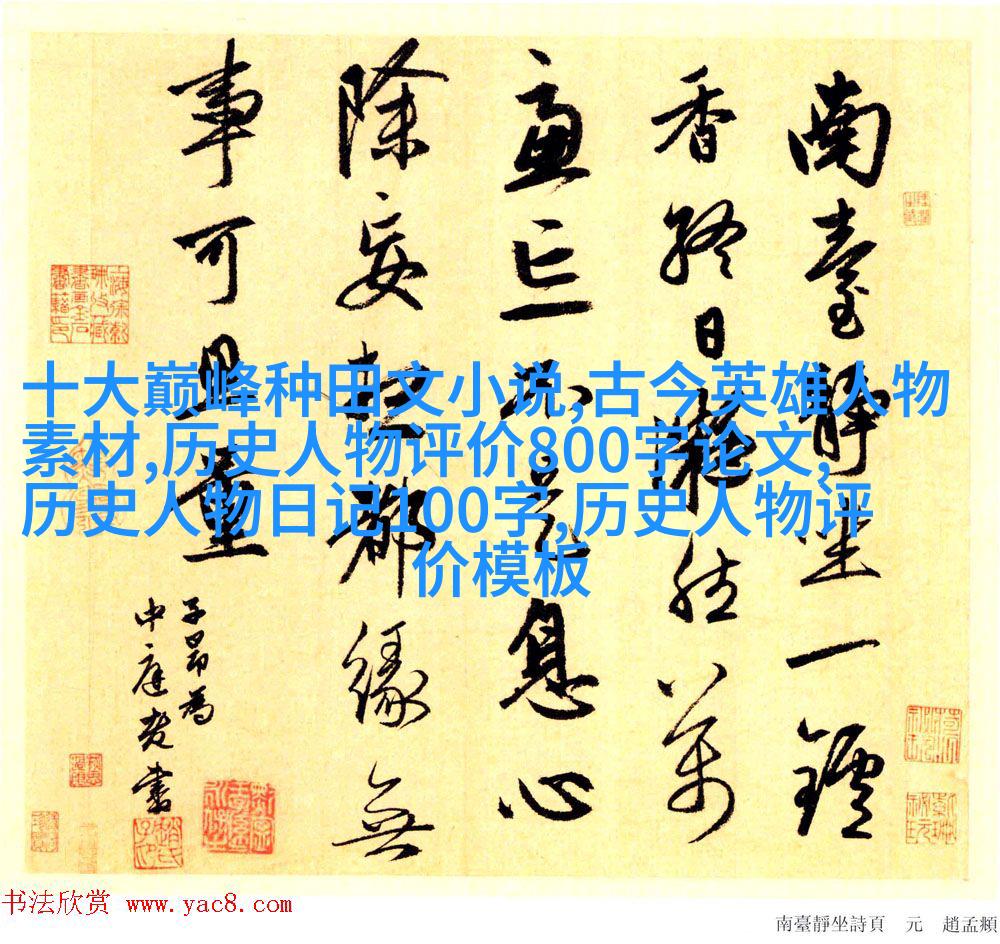 南臺静坐一鑪
香終日凝然萬
慮亡不是息心
除妄想都緣無
事可思量
子昂為
中庭老書
十大巅峰种田文小说,古今英雄人物
素材,历史人物评价800字论文,
历史人物日记100字,历史人物评
价模板
书法欣赏 www.yac8.com
南臺靜坐詩頁 元 趙孟頫